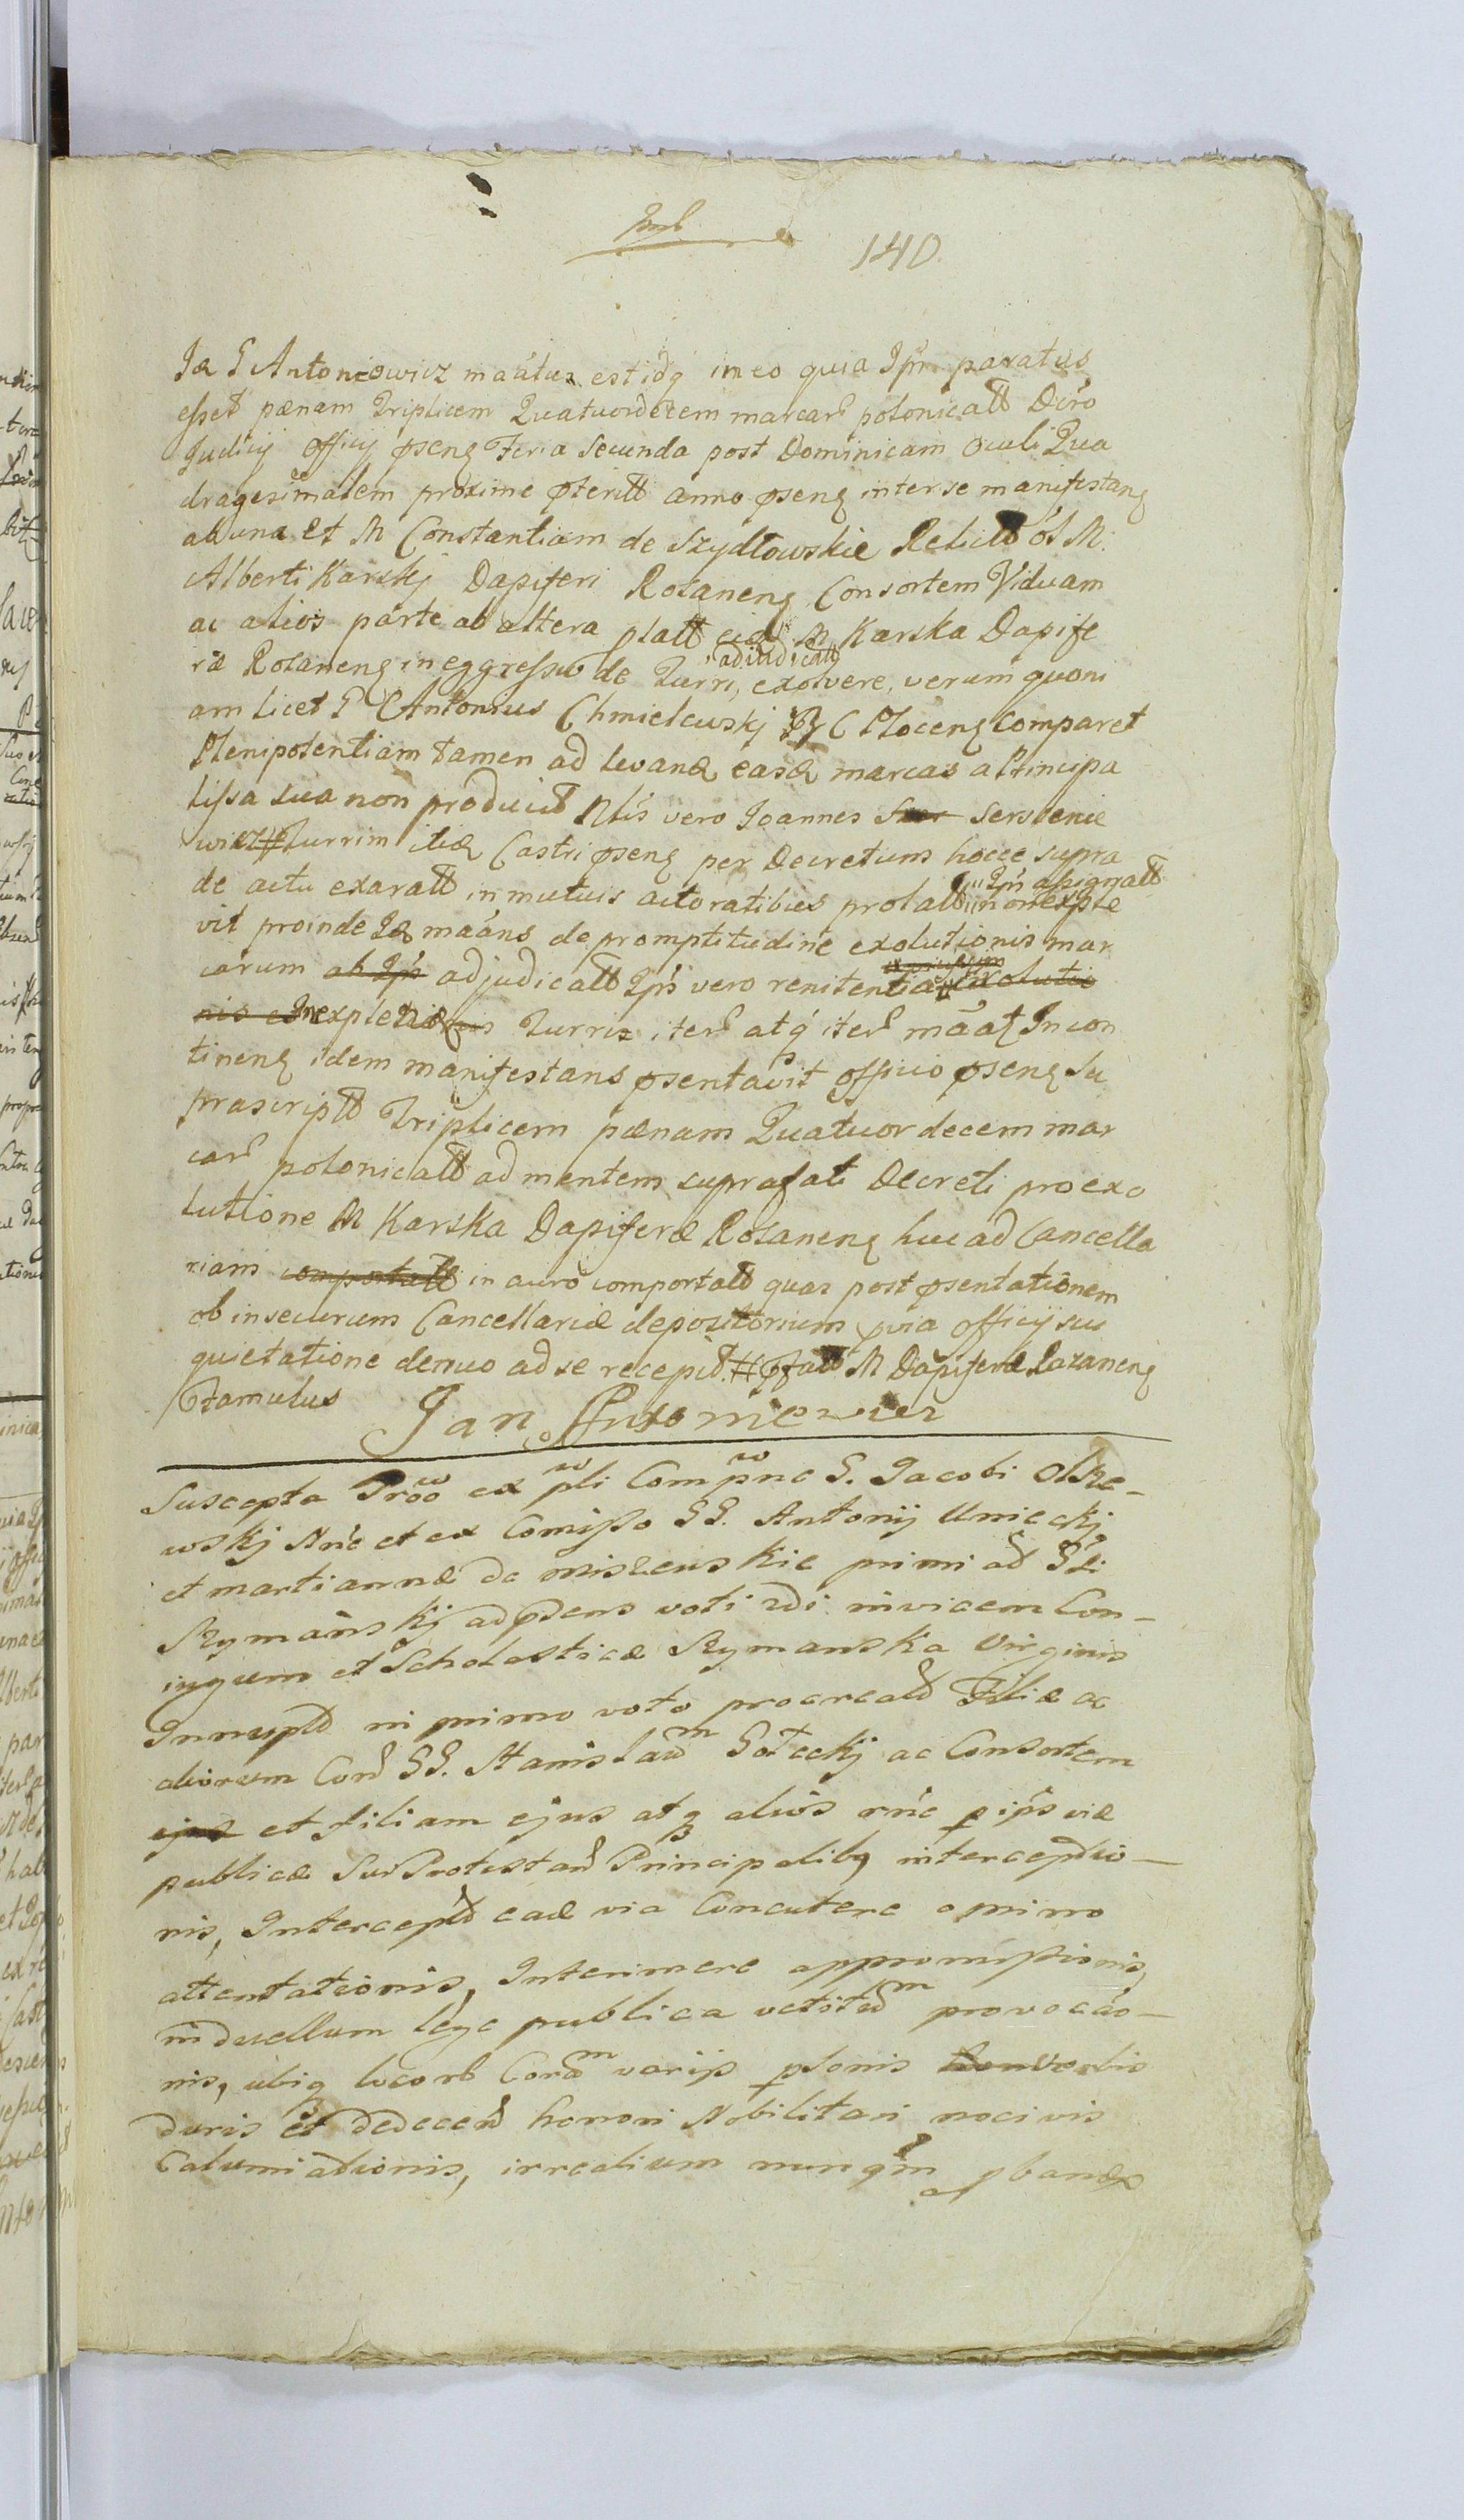 140.
Idē G Antoniowicz maātus est idq in eo quia Ipse paratus
esset pænam Triplicem Quatuordecem marcar polonicall Dcro
Judicij officij pseng Feria Secunda post Dominicam Oculi Qua
dragesimalem proxime pterill anno pseng inter se manifestang
ab una et M Constantiam de Szydłowskie Relictā ol M.
Alberti Karskj Dapiferi Rozaneng Consortem Viduam
ac alios parte ab altera platt eid M Karska Dapife
ræ Rozaneng in eggressu de Turri, adiudicatt exolvere, verum quoni
am licet G Antonius Chmielewskj C Ploceng comparet
Plenipotentiam tamen ad levand easd marcas a Principa
lissa sua non producit Nlis vero Joannes Ser Serwienie
wicz # Turrim itid Castri pseng per Decretum hocce supra
de actu exaratt in mutuis actoratibus prolatt Ipsi assignatt non exple
vit proinde Id maāns de promptitudine exolutionis mar
carum ab Ipsi adjudicatt Ipsi vero renitentia exolutio
nis et in expletionis Turris iter atq iter māat Incon
tineng idem manifestans psentavit officio pseng su
prascriptt Triplicem pænam Quatuor decem mar
car polonicatt ad mentem suprafati Decreti pro exo
lutione M Karska Dapiferæ Rozaneng huc ad Cancella
riam comportatt in auro comportatt quas post psentationem
ob insecurum Cancellariæ depositorium pvia officij su
quietatione denuo ad se recepit. # M Dapiferæ Rozaneng
Famulus Jan Antoniewicz
Suscepta Pröo ex pli Compne G. Jacobi Olsze-
wskj Nrīe et ex Comisso GG. Antonij Unieckj
et martiannæ de miszewskie primi ad Gli
Szymānskj ad psens voti 2di invicem Con-
iugum et Scholasticæ Szymanska Virginis
Innuptā in primo voto procreatā Filiæ ac
aliorum Cora GG. Stanisławm Gołeckj ac Consortem
ejus et filiam ejus atq aliōs rne p ips viæ
publicæ Sui Protestan Principalibq interceptio-
nis, Intercepta ead via Concutere omnino
attentationis, Interimere appromissionis,
in duellum lege publica vetitum provocāo-
nis, ubiq locorb Coram varijs psonis verbis
duris et dedecen honori Nobilitari nocivis
Calumniationis, irrealium nunqm pbandx